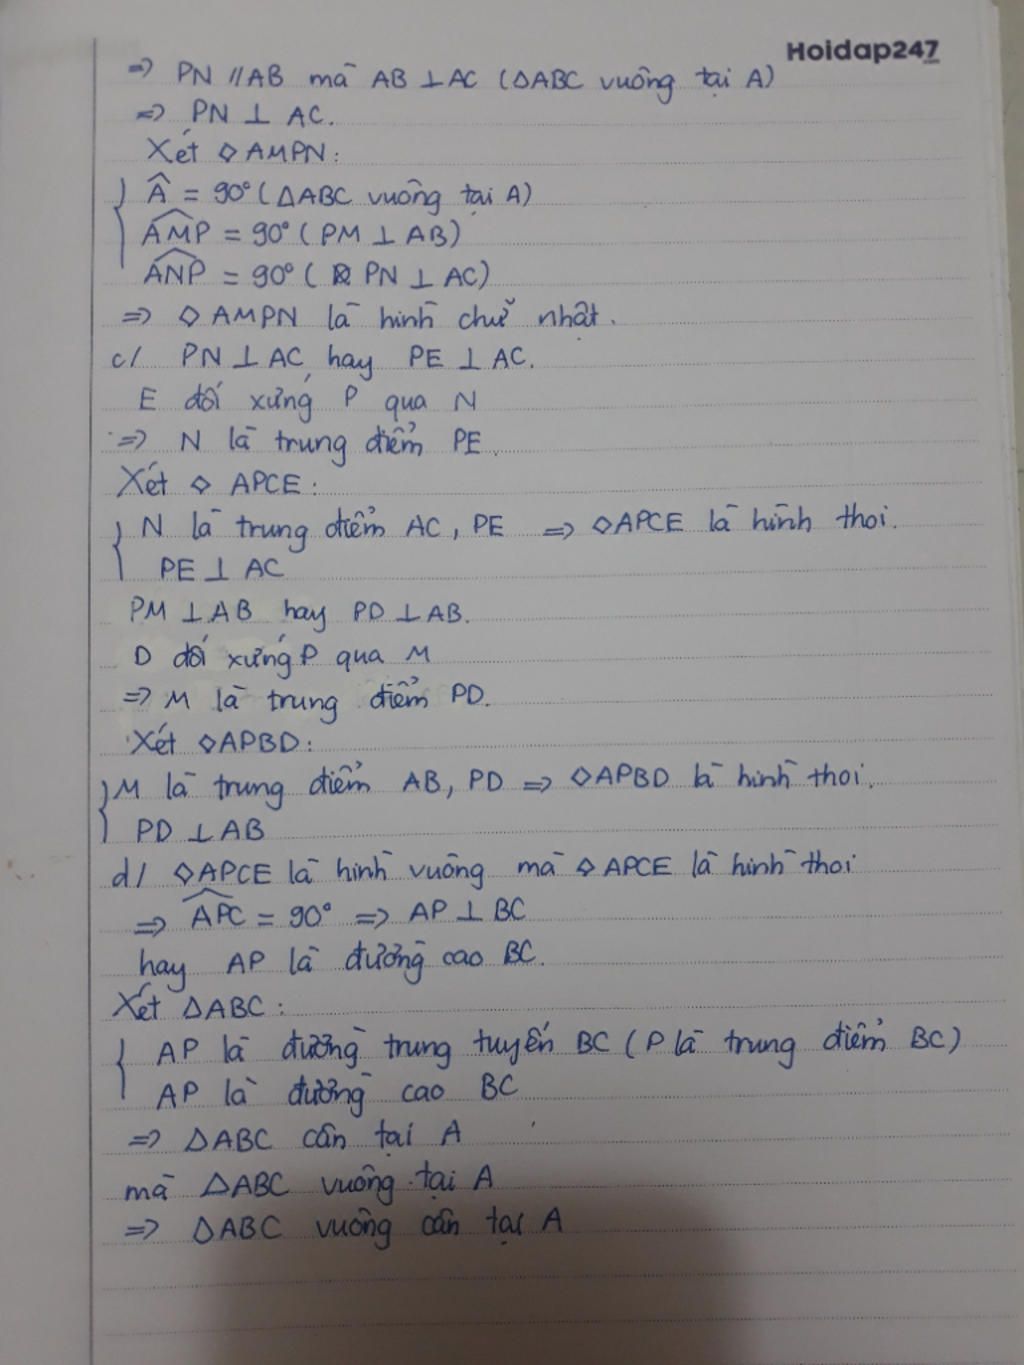 Hoidap247
=> PN // AB mà AB ⊥ AC (△ABC vuông tại A)
=> PN ⊥ AC.
Xét ◇AMPN:
Â = 90° (△ABC vuông tại A)
AMP = 90° (PM ⊥ AB)
ANP = 90° ( PN ⊥ AC)
=> ◇AMPN là hình chữ nhật.
c/ PN ⊥ AC hay PE ⊥ AC.
E đối xứng P qua N
=> N là trung điểm PE.
Xét ◇ APCE:
N là trung điểm AC, PE => ◇APCE là hình thoi.
PE ⊥ AC
PM ⊥ AB hay PD ⊥ AB.
D đối xứng P qua M
=> M là trung điểm PD.
Xét ◇APBD:
M là trung điểm AB, PD => ◇APBD là hình thoi.
PD ⊥ AB
d/ ◇APCE là hình vuông mà ◇APCE là hình thoi
=> APC = 90° => AP ⊥ BC
hay AP là đường cao BC.
Xét △ABC:
AP là đường trung tuyến BC (P là trung điểm BC)
AP là đường cao BC
=> △ABC cân tại A
mà △ABC vuông tại A
=> △ABC vuông cân tại A